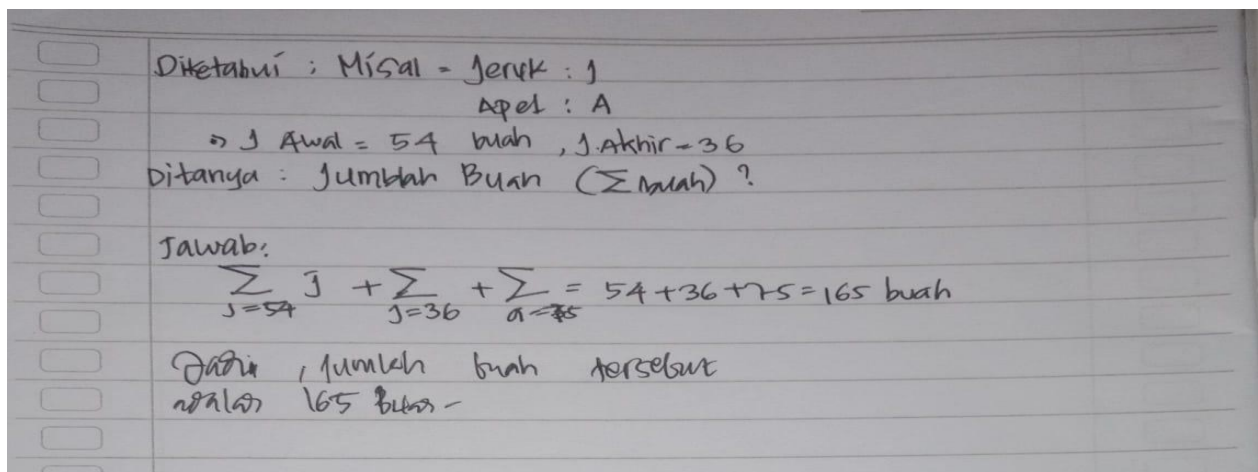 Diketahui : Misal - Jeruk : J
Apel : A
⇒ J Awal = 54 buah , J.Akhir = 36
Ditanya : Jumblah Buah (Σ buah) ?
Jawab:
Σ J + Σ + Σ = 54 + 36 + 75 = 165 buah
J=54 J=36 a=75
Jadi , Jumlah buah tersebut
adalah 165 Buah -